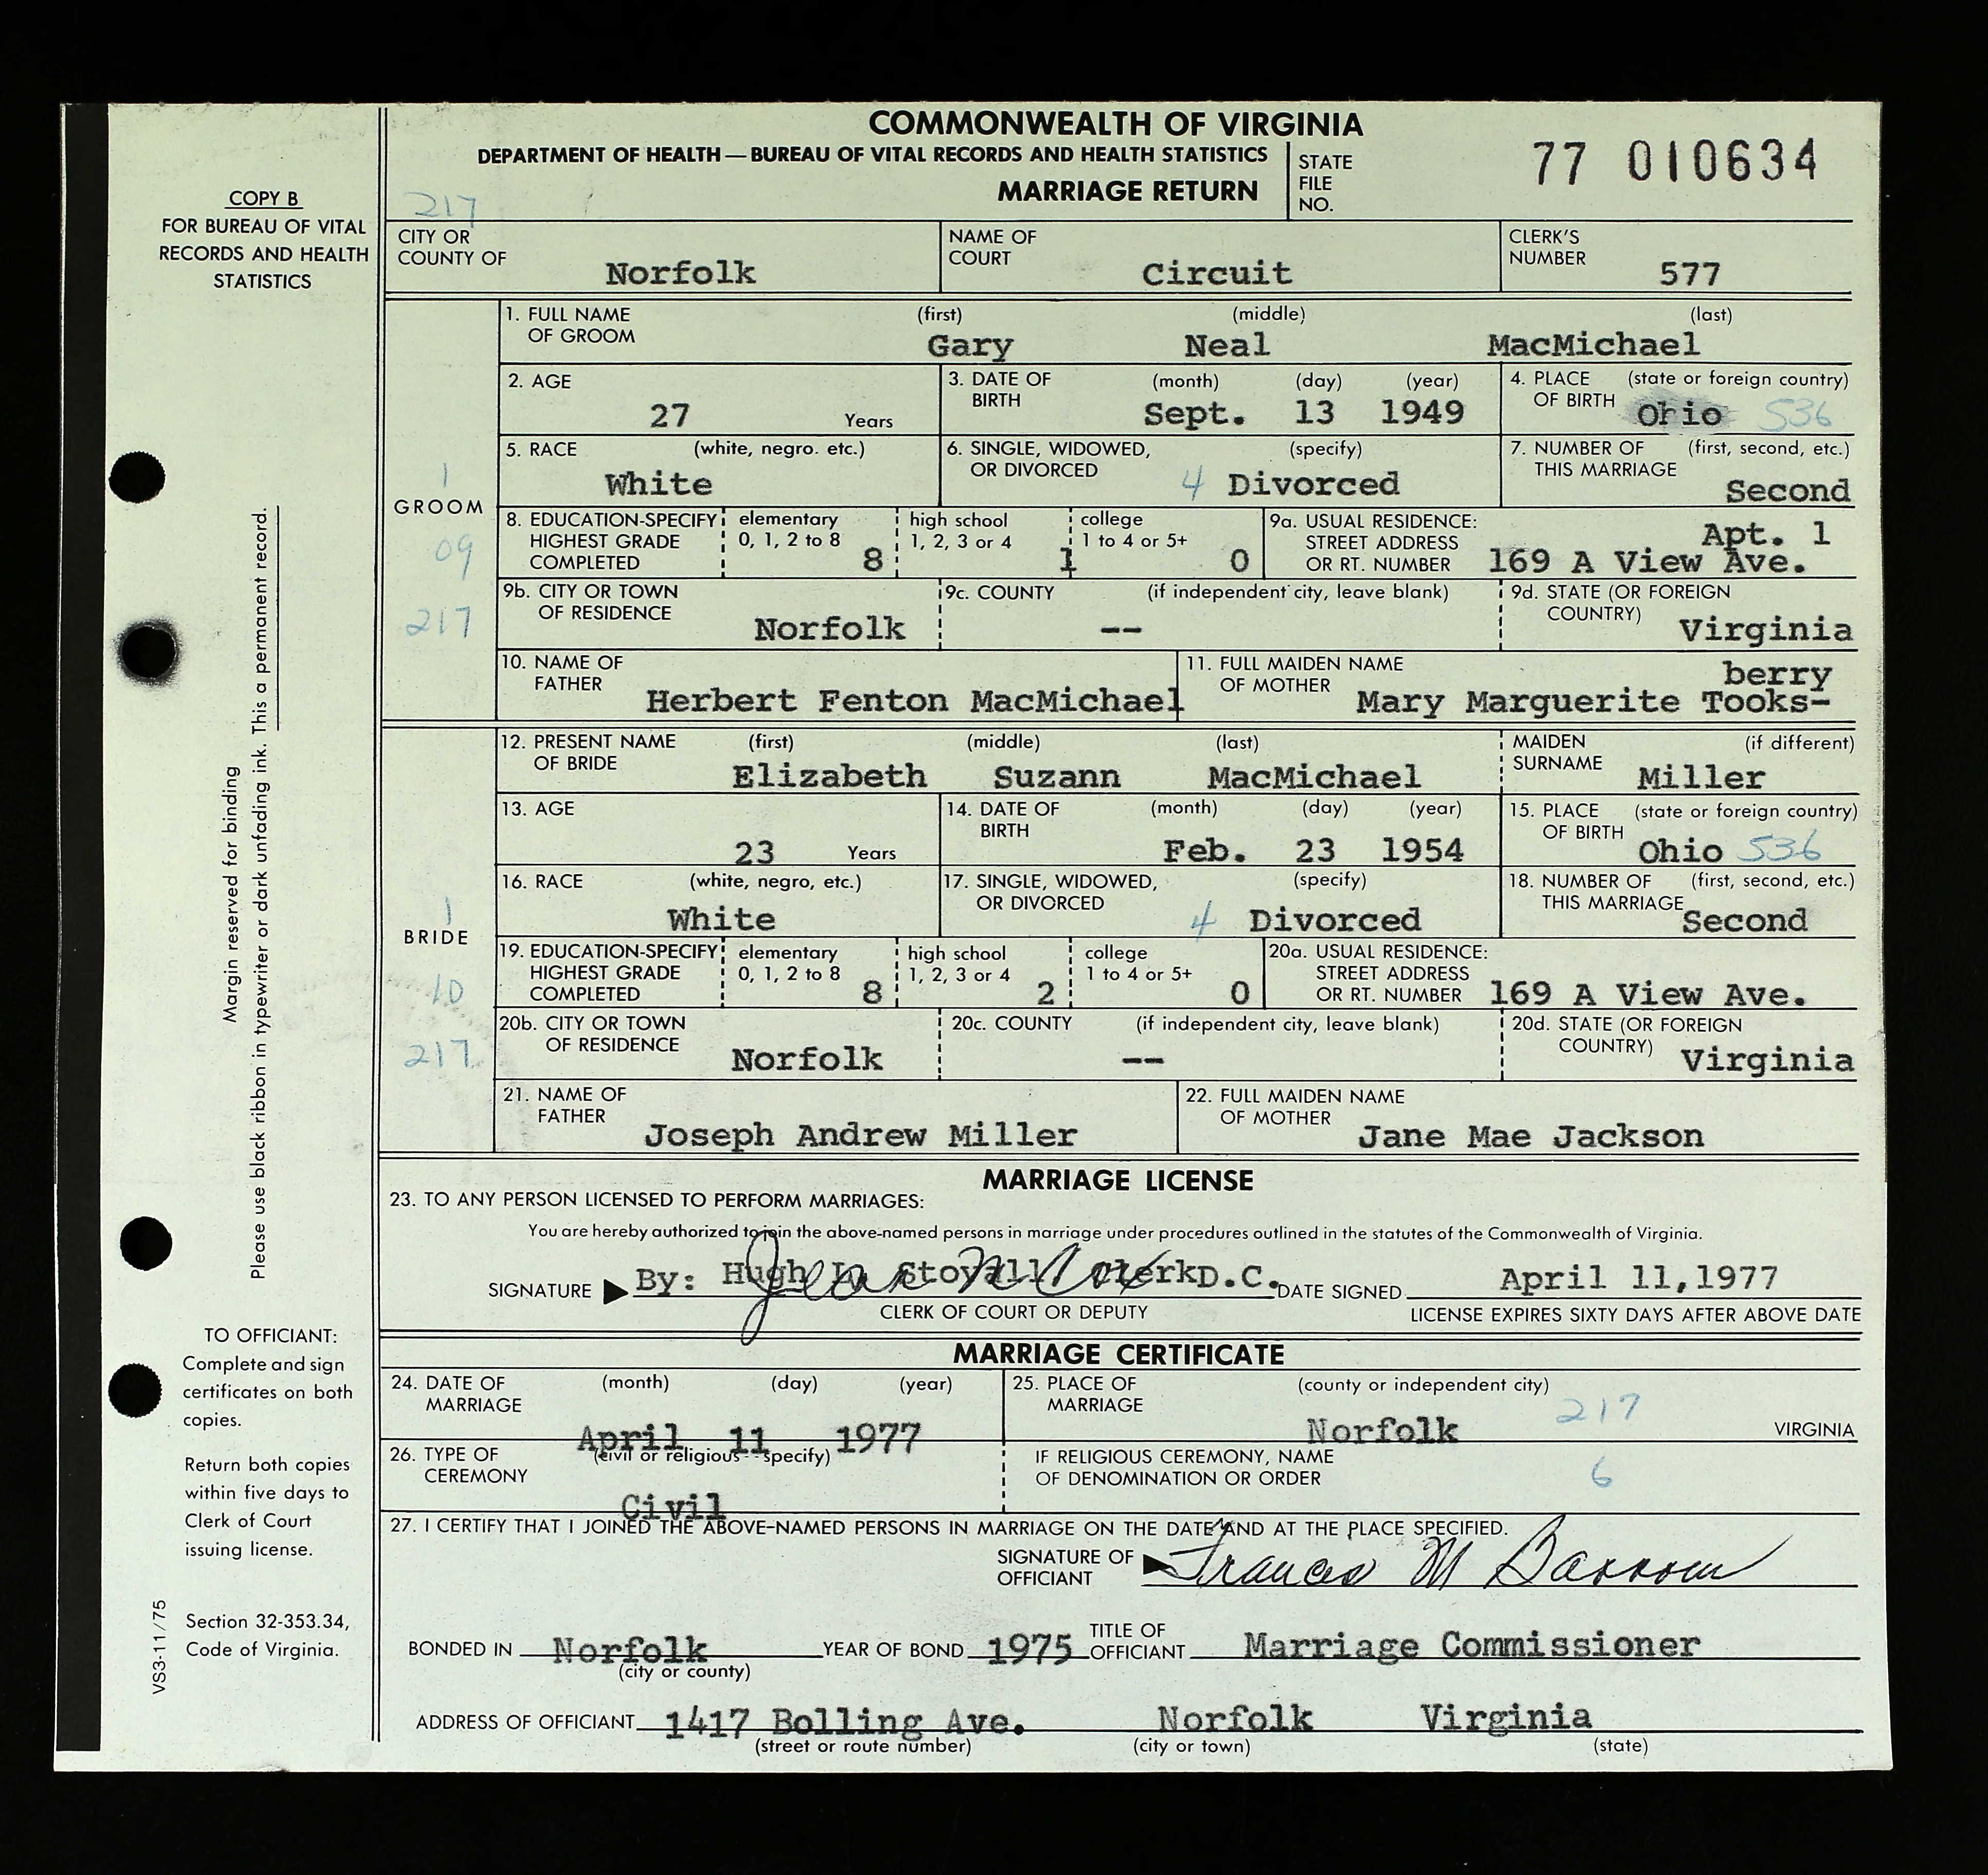 COMMONWEALTH OF VIRGINIA
DEPARTMENT OF HEALTH — BUREAU OF VITAL RECORDS AND HEALTH STATISTICS
MARRIAGE RETURN
STATE FILE NO. 77 010634
217
COPY B
FOR BUREAU OF VITAL
RECORDS AND HEALTH
STATISTICS
CITY OR COUNTY OF Norfolk NAME OF COURT Circuit CLERK'S NUMBER 577
GROOM
1
09
217
1. FULL NAME OF GROOM (first) Gary (middle) Neal (last) MacMichael
2. AGE 27 Years 3. DATE OF BIRTH (month) Sept. (day) 13 (year) 1949 4. PLACE OF BIRTH (state or foreign country) Ohio 536
5. RACE (white, negro. etc.) White 6. SINGLE, WIDOWED, OR DIVORCED (specify) 4 Divorced 7. NUMBER OF THIS MARRIAGE (first, second, etc.) Second
8. EDUCATION-SPECIFY HIGHEST GRADE COMPLETED elementary 0, 1, 2 to 8 8 high school 1, 2, 3 or 4 1 college 1 to 4 or 5+ 0 9a. USUAL RESIDENCE: STREET ADDRESS OR RT. NUMBER 169 A View Ave. Apt. 1
9b. CITY OR TOWN OF RESIDENCE Norfolk 9c. COUNTY (if independent city, leave blank) -- 9d. STATE (OR FOREIGN COUNTRY) Virginia
10. NAME OF FATHER Herbert Fenton MacMichael 11. FULL MAIDEN NAME OF MOTHER Mary Marguerite Tooks-
berry
BRIDE
1
10
217
12. PRESENT NAME OF BRIDE (first) Elizabeth (middle) Suzann (last) MacMichael MAIDEN SURNAME (if different) Miller
13. AGE 23 Years 14. DATE OF BIRTH (month) Feb. (day) 23 (year) 1954 15. PLACE OF BIRTH (state or foreign country) Ohio 536
16. RACE (white, negro, etc.) White 17. SINGLE, WIDOWED, OR DIVORCED (specify) 4 Divorced 18. NUMBER OF THIS MARRIAGE (first, second, etc.) Second
19. EDUCATION-SPECIFY HIGHEST GRADE COMPLETED elementary 0, 1, 2 to 8 8 high school 1, 2, 3 or 4 2 college 1 to 4 or 5+ 0 20a. USUAL RESIDENCE: STREET ADDRESS OR RT. NUMBER 169 A View Ave.
20b. CITY OR TOWN OF RESIDENCE Norfolk 20c. COUNTY (if independent city, leave blank) -- 20d. STATE (OR FOREIGN COUNTRY) Virginia
21. NAME OF FATHER Joseph Andrew Miller 22. FULL MAIDEN NAME OF MOTHER Jane Mae Jackson
MARRIAGE LICENSE
23. TO ANY PERSON LICENSED TO PERFORM MARRIAGES:
You are hereby authorized to join the above-named persons in marriage under procedures outlined in the statutes of the Commonwealth of Virginia.
SIGNATURE By: Hugh L. Stovall, Clerk D.C. DATE SIGNED April 11, 1977
CLERK OF COURT OR DEPUTY LICENSE EXPIRES SIXTY DAYS AFTER ABOVE DATE
MARRIAGE CERTIFICATE
24. DATE OF MARRIAGE (month) April (day) 11 (year) 1977 25. PLACE OF MARRIAGE (county or independent city) Norfolk 217 VIRGINIA
26. TYPE OF CEREMONY (civil or religious--specify) Civil IF RELIGIOUS CEREMONY, NAME OF DENOMINATION OR ORDER 6
27. I CERTIFY THAT I JOINED THE ABOVE-NAMED PERSONS IN MARRIAGE ON THE DATE AND AT THE PLACE SPECIFIED.
SIGNATURE OF OFFICIANT Frances M
BONDED IN Norfolk YEAR OF BOND 1975 TITLE OF OFFICIANT Marriage Commissioner
(city or county)
ADDRESS OF OFFICIANT 1417 Bolling Ave. Norfolk Virginia
(street or route number) (city or town) (state)
Margin reserved for binding
Please use black ribbon in typewriter or dark unfading ink. This a permanent record.
TO OFFICIANT:
Complete and sign
certificates on both
copies.
Return both copies
within five days to
Clerk of Court
issuing license.
Section 32-353.34,
Code of Virginia.
VS3-11/75